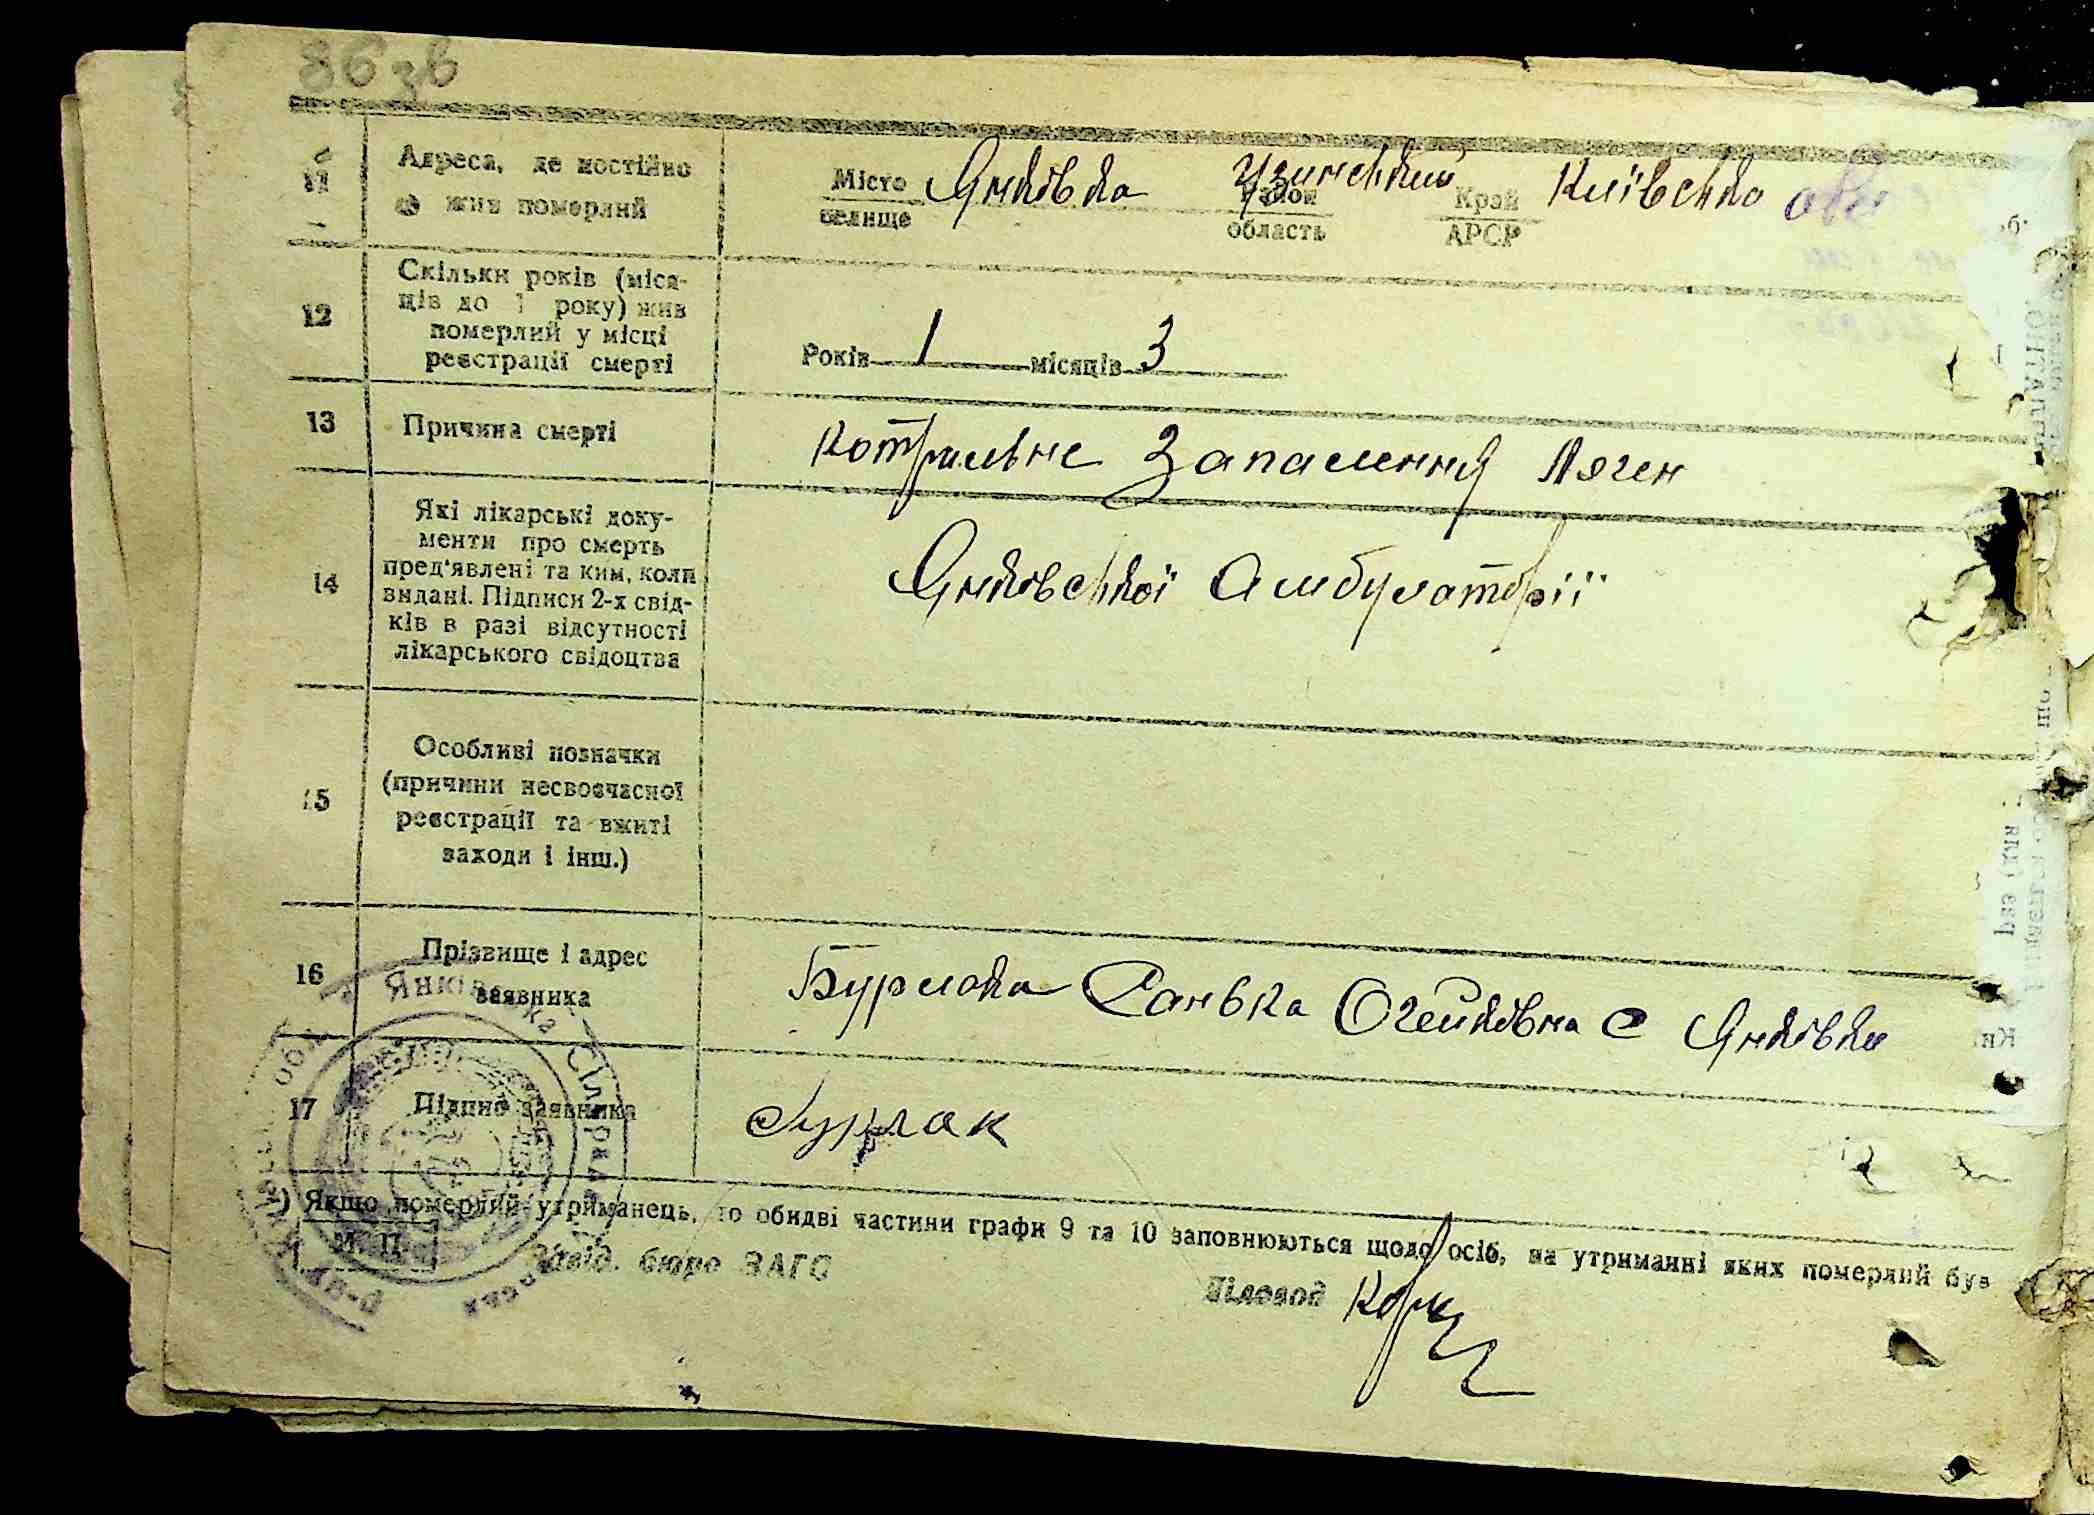 86 зв
11 Адреса, де постійно
жив померлий
Місто
селище
Янківка
Узинський
район
область
Край
АРСР
Київська обл
12 Скільки років (міся-
ців до 1 року) жив
померлий у місці
реєстрації смерті
Років 1 місяців 3
13 Причина смерті
Котральне Запалення Леген
14 Які лікарські доку-
менти про смерть
пред'явлені та ким, коли
видані. Підписи 2-х свід-
ків в разі відсутності
лікарського свідоцтва
Янківської Амбулаторії
15 Особливі позначки
(причини несвоєчасної
реєстрації та вжиті
заходи і інш.)
16 Прізвище і адрес
заявника
Бурлака Ганька с Янківка
17 Підпис заявника
Бурлак
*) Якщо померлий утриманець, то обидві частини графи 9 та 10 заповнюються щодо осіб, на утриманні яких померлий був
М. П.
Завід. бюро ЗАГС
Діловод
Янківська сільрада